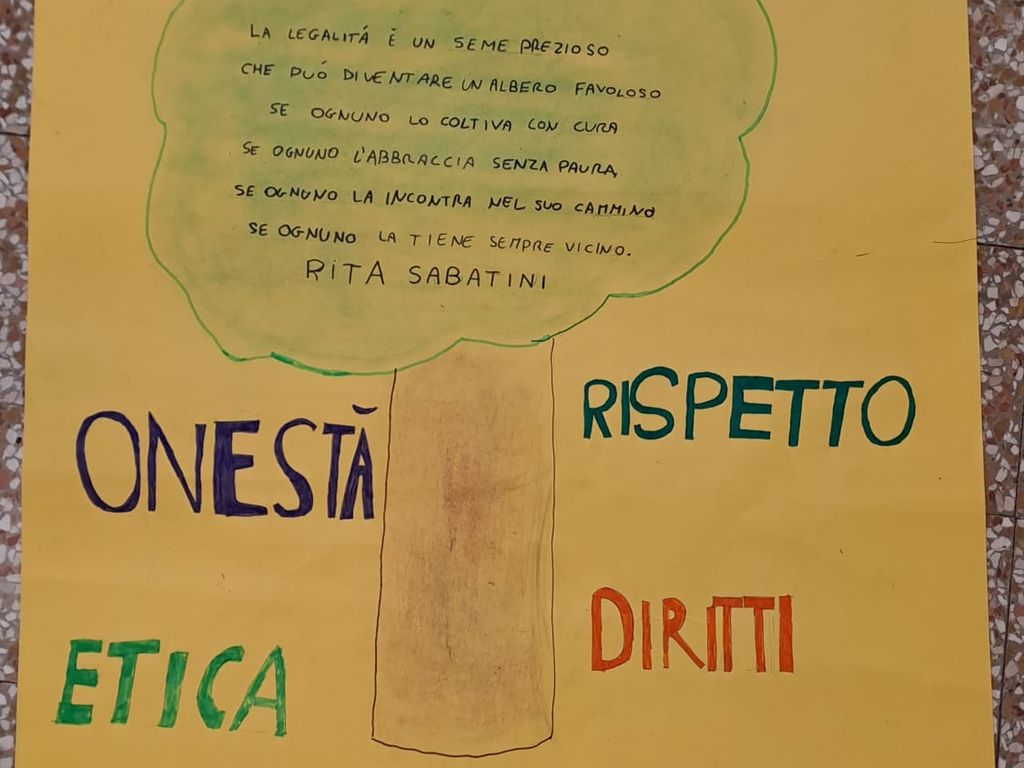 LA LEGALITÁ É UN SEME PREZIOSO
CHE PUÓ DIVENTARE UN ALBERO FAVOLOSO
SE OGNUNO LO COLTIVA CON CURA
SE OGNUNO L'ABBRACCIA SENZA PAURA,
SE OGNUNO LA INCONTRA NEL SUO CAMMINO
SE OGNUNO LA TIENE SEMPRE VICINO.
RITA SABATINI
ONESTĂ
RISPETTO
ETICA
DIRITTI